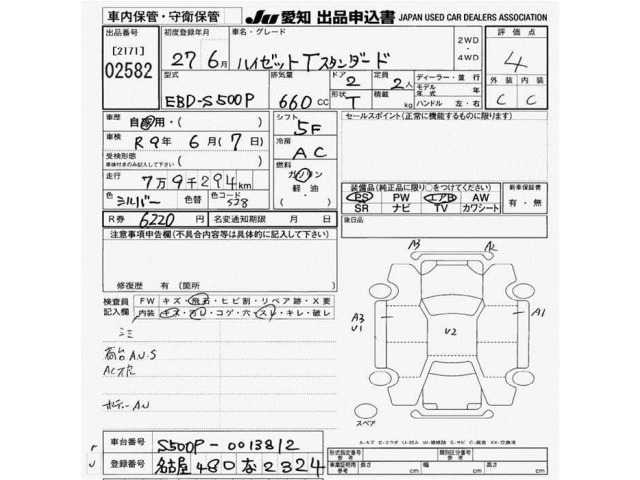 車内保管・守衛保管
JU 愛知 出品申込書 JAPAN USED CAR DEALERS ASSOCIATION
出品番号 初度登録年月 車名・グレード 2WD ・ 4WD 評価点
[2171] 02582 27年6月 ハイゼットTスタンダード 4
型式 排気量 ドア 定員 ディーラー・並行 外装 内装
EBD-S500P 660cc 2 2人 モデル年式 年
形状 T 積載 kg ハンドル 左・右 C C
車歴 自家用・( ) シフト 5F セールスポイント(正常に機能するものに限ります)
車検 R9年6月(7日) 冷房 AC
受検形態 車検付きのみ記入して下さい ( ) 燃料 ガソリン 軽油
走行 7万9千294km
色 シルバー 色替 色コード S28
装備品(純正品に限り○をつけてください) 新車保証書
PS PW エアB AW 有・無
SR ナビ TV カワシート
R券 6220円 名変通知期限 月 日 後日品
注意事項申告欄(不具合内容等は具体的に記入して下さい)
修復歴 有(箇所 )
検査員記入欄 FW キズ・飛石・ヒビ割・リペア跡・X要
内装 キズ・汚レ・コゲ・穴・スレ・キレ・破レ
荷台A.U.S
ボディーAU
A3 A2
A3 U1 U2 A1
スペア
車台番号 S500P-0013812
登録番号 名古屋 480 な 2324
形式指定番号 類別区分番号
車庫証明用参考 長さ cm 幅 cm 高さ cm